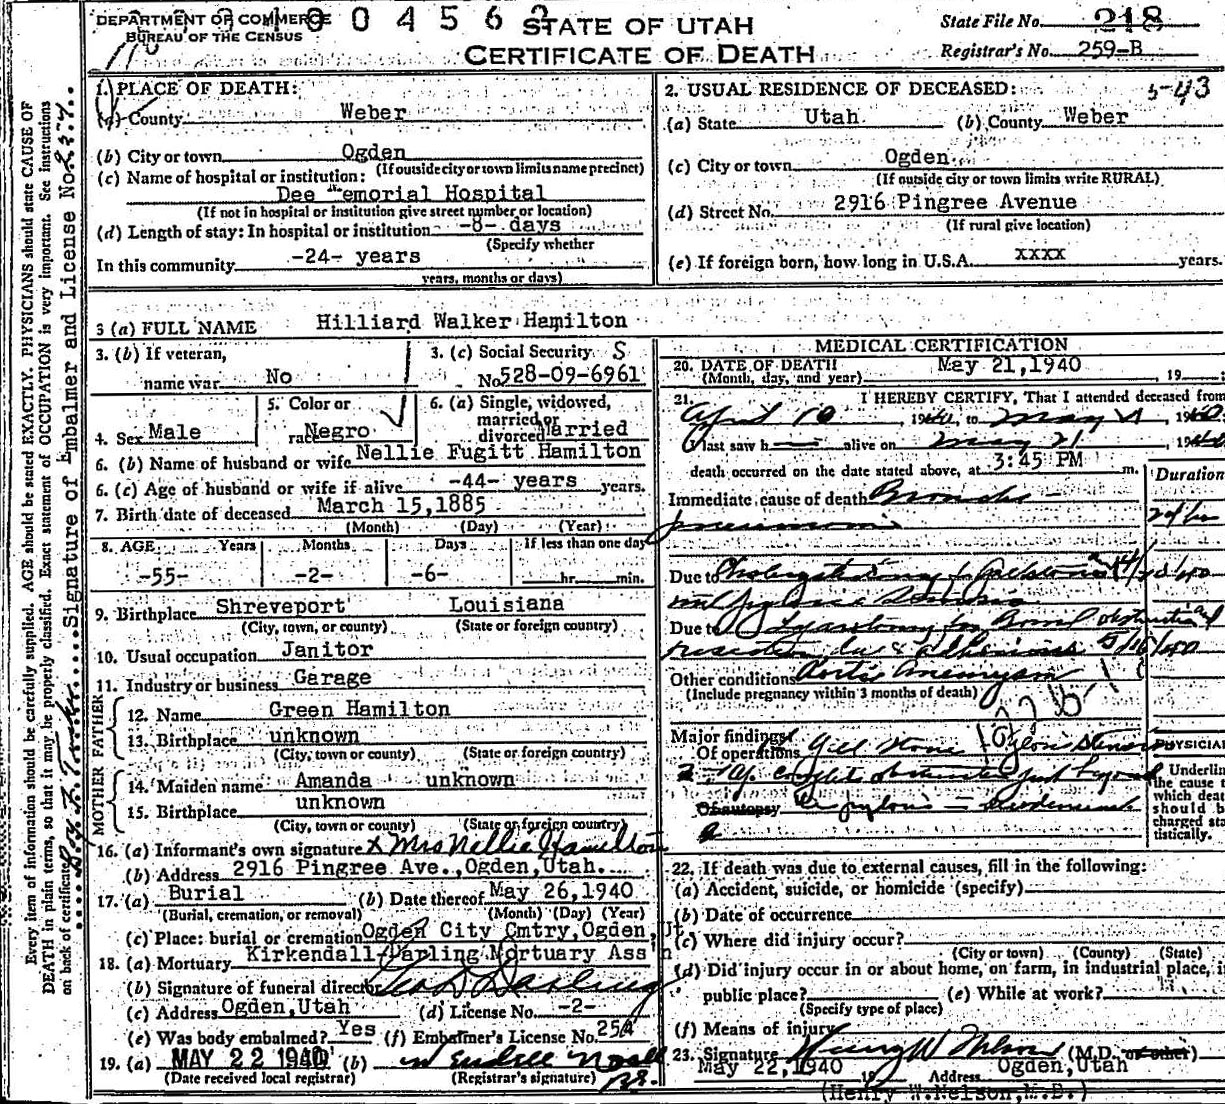 DEPARTMENT OF COMMERCE
BUREAU OF THE CENSUS
0 0 4 5 6
STATE OF UTAH
CERTIFICATE OF DEATH
State File No. 218
Registrar's No. 259-B
1. PLACE OF DEATH:
(a) County Weber
(b) City or town Ogden
(If outside city or town limits name precinct)
(c) Name of hospital or institution:
Dee Memorial Hospital
(If not in hospital or institution give street number or location)
(d) Length of stay: In hospital or institution -8- days
(Specify whether
In this community -24- years
years, months or days)
2. USUAL RESIDENCE OF DECEASED: 5-43
(a) State Utah (b) County Weber
(c) City or town Ogden
(If outside city or town limits write RURAL)
(d) Street No. 2916 Pingree Avenue
(If rural give location)
(e) If foreign born, how long in U.S.A. xxxx years.
3 (a) FULL NAME Hilliard Walker Hamilton
3. (b) If veteran,
name war No
3. (c) Social Security S
No. 528-09-6961
4. Sex Male
5. Color or
race Negro
6. (a) Single, widowed,
married or
divorced Married
6. (b) Name of husband or wife Nellie Fugitt Hamilton
6. (c) Age of husband or wife if alive -44- years years.
7. Birth date of deceased March 15,1885
(Month) (Day) (Year)
8. AGE Years Months Days If less than one day
-55- -2- -6- hr. min.
9. Birthplace Shreveport Louisiana
(City, town, or county) (State or foreign country)
10. Usual occupation Janitor
11. Industry or business Garage
FATHER
12. Name Green Hamilton
13. Birthplace unknown
(City, town or county) (State or foreign country)
MOTHER
14. Maiden name Amanda unknown
15. Birthplace unknown
(City, town or county) (State or foreign country)
16. (a) Informant's own signature x Mrs Nellie Hamilton
(b) Address 2916 Pingree Ave.,Ogden,Utah.
17. (a) Burial (b) Date thereof May 26,1940
(Burial, cremation, or removal) (Month) (Day) (Year)
(c) Place: burial or cremation Ogden City Cmtry,Ogden,Ut.
18. (a) Mortuary Kirkendall-Darling Mortuary Ass'n
(b) Signature of funeral director Geo D Darling
(c) Address Ogden,Utah (d) License No. -2-
(e) Was body embalmed? Yes (f) Embalmer's License No. 254
19. (a) MAY 22 1940 (b)
(Date received local registrar) (Registrar's signature)
MEDICAL CERTIFICATION
20. DATE OF DEATH May 21,1940
(Month, day, and year) , 19
21. I HEREBY CERTIFY, That I attended deceased from
April 10 , 1940, to May 21 , 1940
I last saw h alive on May 21 , 1940
death occurred on the date stated above, at 3:45 PM m.
Duration
Immediate cause of death Broncho-
pneumonia
Due to
Due to
Other conditions Aortic Aneurysm
(Include pregnancy within 3 months of death)
Major findings
Of operations Gall Stone
Of autopsy
PHYSICIAN
Underline
the cause t
which deat
should b
charged sta
tistically.
22. If death was due to external causes, fill in the following:
(a) Accident, suicide, or homicide (specify)
(b) Date of occurrence
(c) Where did injury occur?
(City or town) (County) (State)
(d) Did injury occur in or about home, on farm, in industrial place, i
public place? (e) While at work?
(Specify type of place)
(f) Means of injury
23. Signature Henry W Nelson (M.D. or other)
May 22,1940 19 Address Ogden,Utah
(Henry W.Nelson,M.D.)
Every item of information should be carefully supplied. AGE should be stated EXACTLY. PHYSICIANS should state CAUSE OF
DEATH in plain terms, so that it may be properly classified. Exact statement of OCCUPATION is very important. See instructions
on back of certificate.
Signature of Embalmer and License No. 254